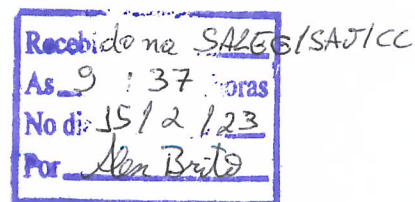 Recebido na SALEG/SAJ/CC
As 9 : 37 horas
No dia 15/2/23
Por Alen Brito